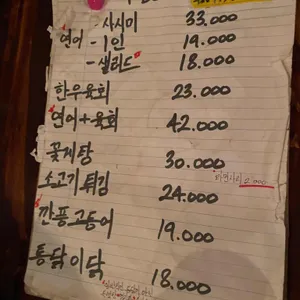 - 사시미 33.000
연어 - 1인 19.000
- 샐러드 18.000
한우육회 23.000
연어+육회 42.000
꽃게탕 30.000
라면사리 2.000
소고기튀김 24.000
깐풍고등어 19.000
통닭이닭 18.000